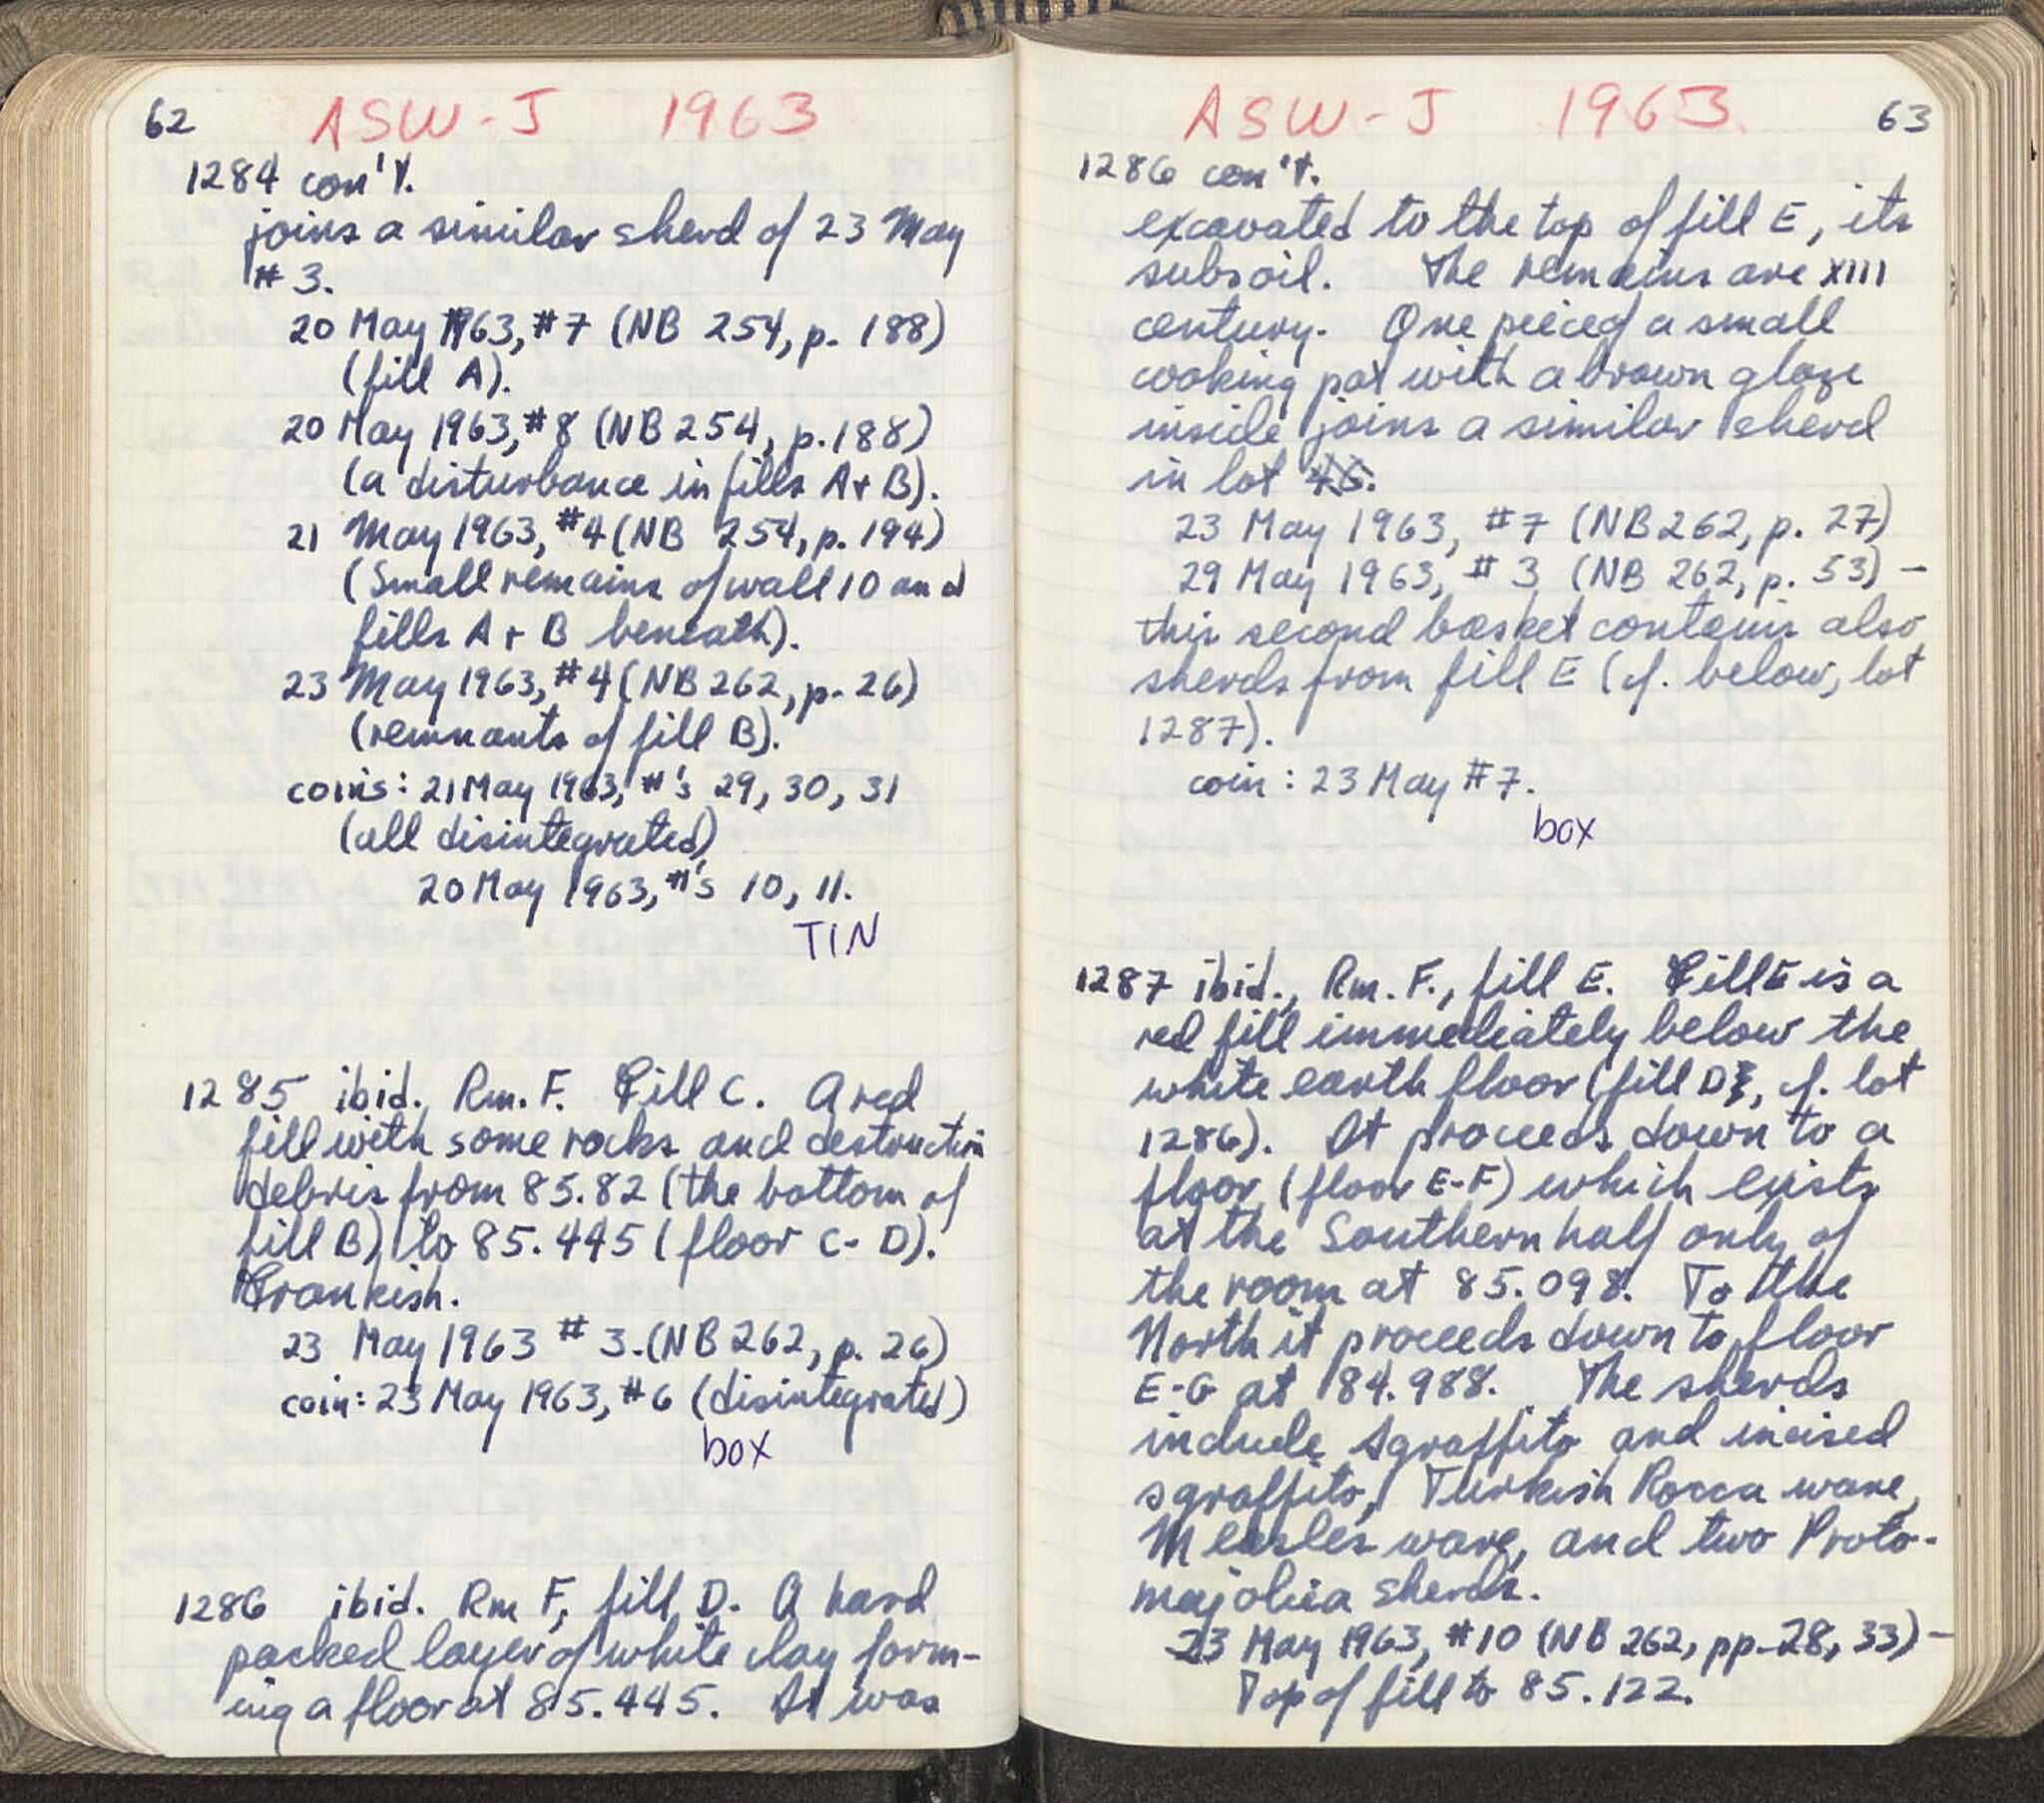 62 ASW-J 1963
1284 con't.
joins a similar sherd of 23 May
# 3.
20 May 1963, #7 (NB 254, p. 188)
(fill A).
20 May 1963, #8 (NB 254, p. 188)
(a disturbance in fills A + B).
21 May 1963, #4 (NB 254, p. 194)
(Small remains of wall 10 and
fills A + B beneath).
23 May 1963, #4 (NB 262, p. 26)
(remnants of fill B).
coins: 21 May 1963, #'s 29, 30, 31
(all disintegrated)
20 May 1963, #'s 10, 11.
TIN
1285 ibid. Rm. F. Fill C. A red
fill with some rocks and destruction
debris from 85.82 (the bottom of
fill B) to 85.445 (floor C-D).
Frankish.
23 May 1963 # 3. (NB 262, p. 26)
coin: 23 May 1963, #6 (disintegrated)
box
1286 ibid. Rm F, fill D. A hard
packed layer of white clay form-
ing a floor at 85.445. It was
ASW-J 1963 63
1286 con't.
excavated to the top of fill E, its
subsoil. The remains are XIII
century. One piece of a small
cooking pot with a brown glaze
inside joins a similar sherd
in lot
23 May 1963, #7 (NB 262, p. 27)
29 May 1963, # 3 (NB 262, p. 53) -
this second basket contains also
sherds from fill E (cf. below, lot
1287).
coin: 23 May #7.
box
1287 ibid., Rm. F., fill E. Fill E is a
red fill immediately below the
white earth floor (fill D, cf. lot
1286). It proceeds down to a
floor (floor E-F) which exists
at the Southern half only of
the room at 85.098. To the
North it proceeds down to floor
E-G at 84.988. The sherds
include sgraffito and incised
sgraffito, Turkish Rocca ware,
Measles ware, and two Proto-
majolica sherds.
23 May 1963, #10 (NB 262, pp. 28, 33) -
Top of fill to 85.122.